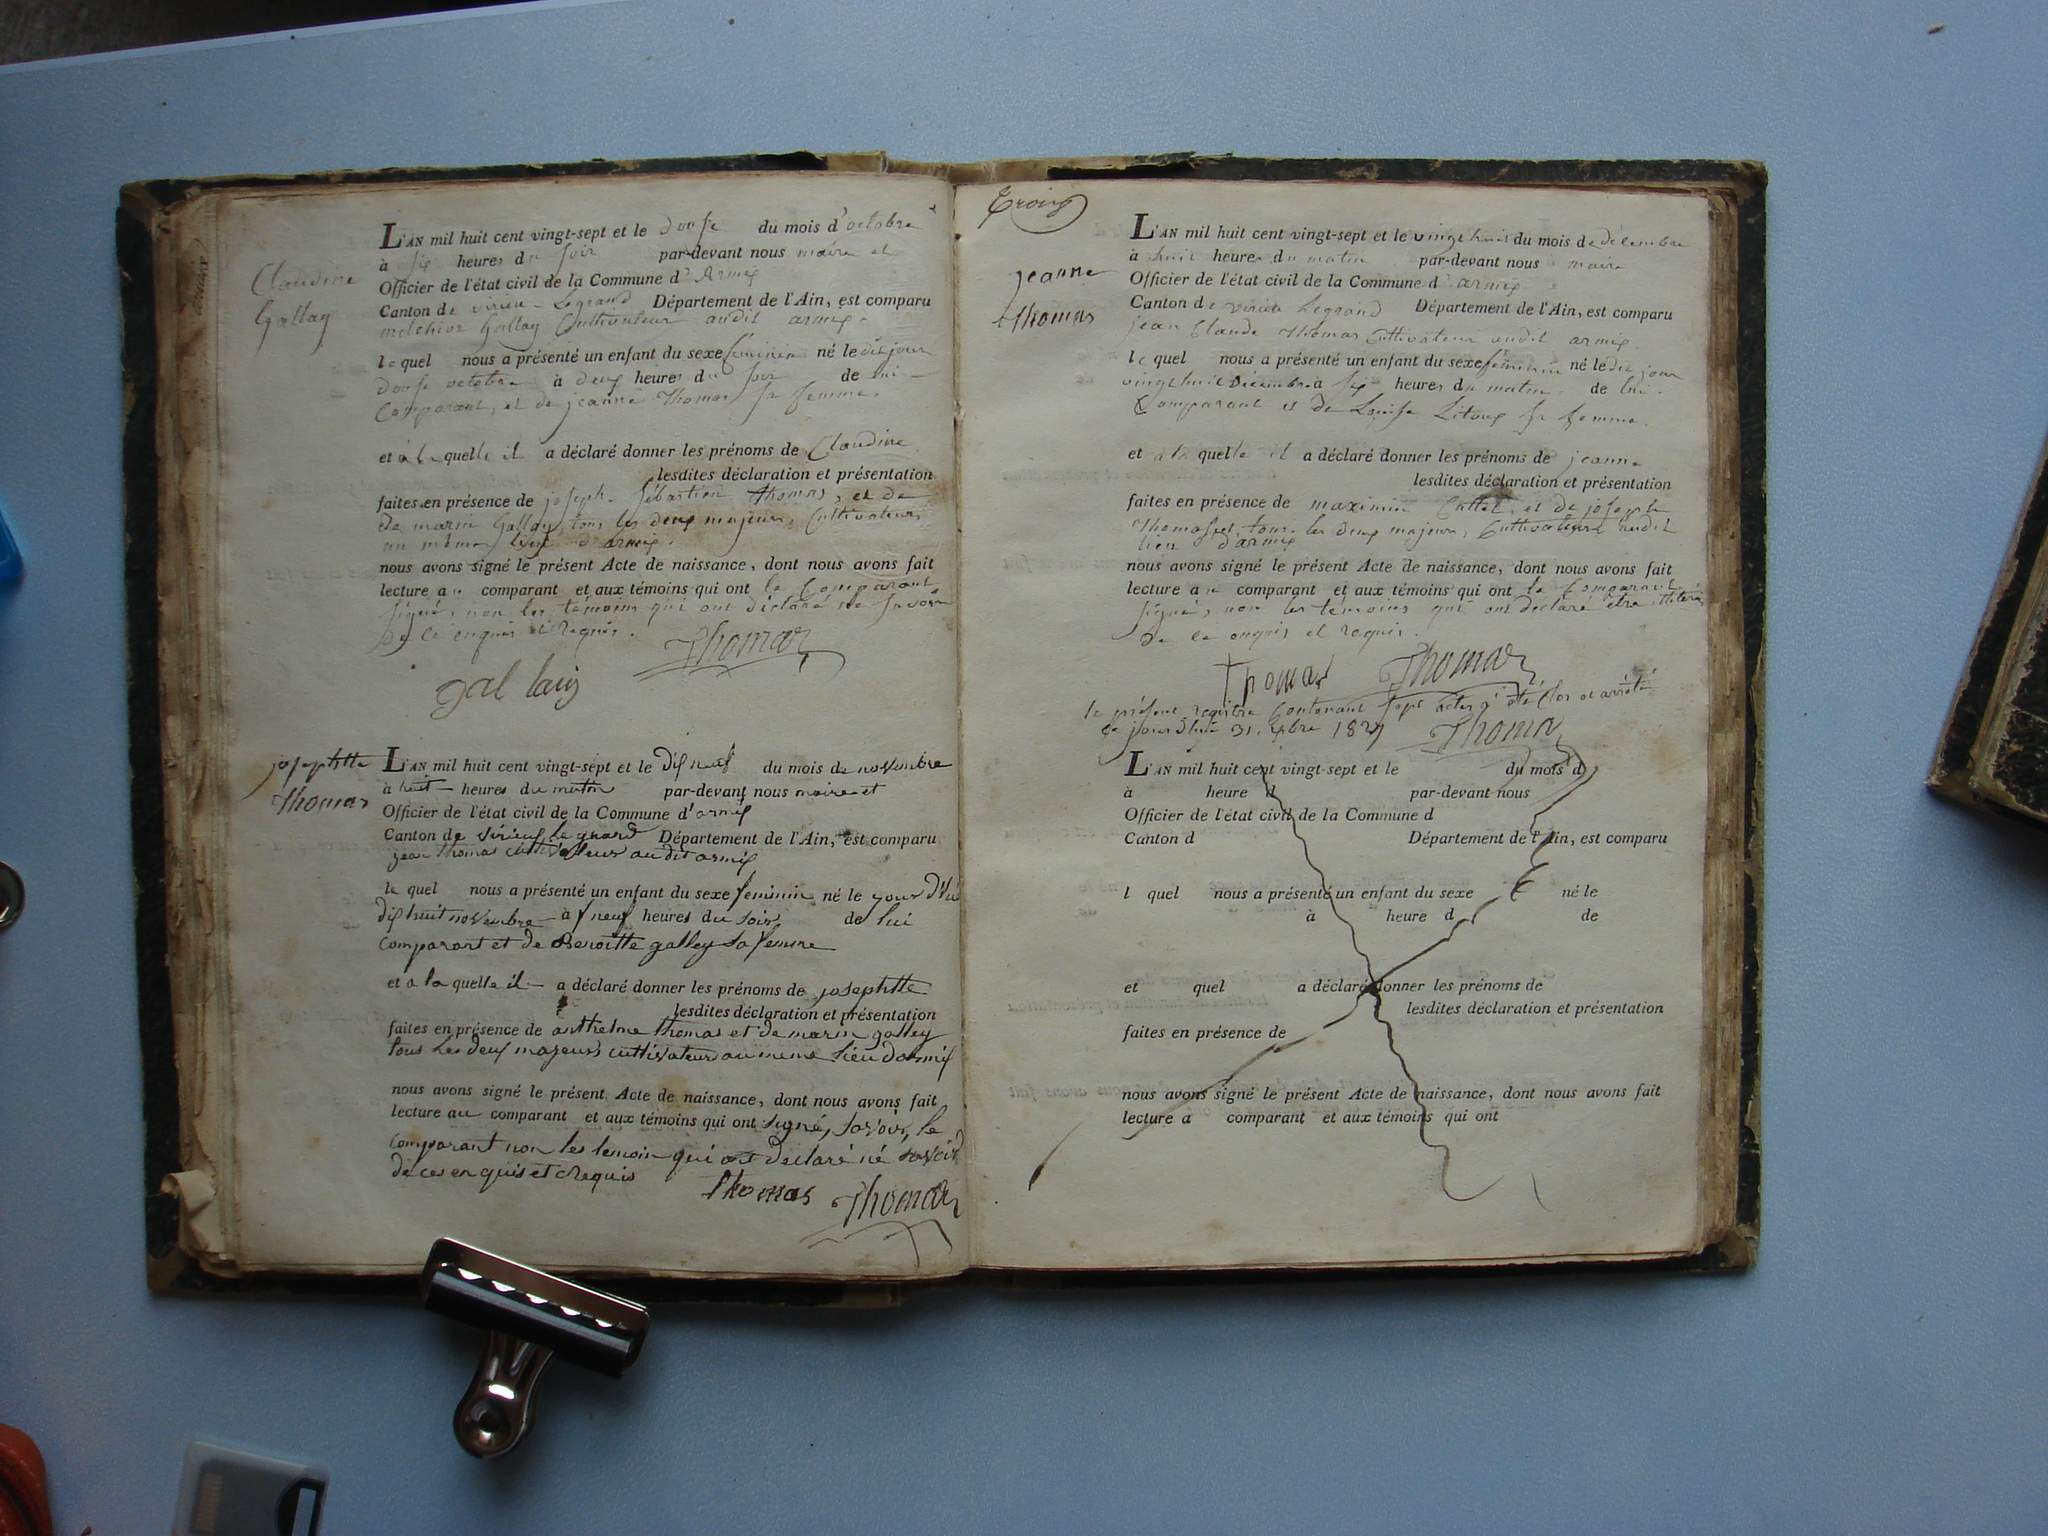 Claudine
Gallay
L'AN mil huit cent vingt-sept et le douse du mois d'octobre
à six heures du soir par-devant nous maire et
Officier de l'état civil de la Commune d'Armix
Canton de virieu-Legrand Département de l'Ain, est comparu
melchior Gallay Cultivateur audit armix.
le quel nous a présenté un enfant du sexe feminin né le dit jour
douse octobre à deux heures du soir de lui
Comparant, et de jeanne Thomas sa femme.
et à la quelle il a déclaré donner les prénoms de Claudine
lesdites déclaration et présentation
faites en présence de joseph Sébastien Thomas, et de
de marin Gallay, tous les deux majeurs, Cultivateurs
au même lieu d'armix.
nous avons signé le présent Acte de naissance, dont nous avons fait
lecture au comparant et aux témoins qui ont le Comparant
signé, non les témoins qui ont déclaré ne savoir
de ce enquis et requis.
Thomas
gal laiy
josephtte
Thomas
L'AN mil huit cent vingt-sept et le dix neuf du mois de novembre
à huit heures du matin par-devant nous maire et
Officier de l'état civil de la Commune d'armix
Canton de virieux le grand Département de l'Ain, est comparu
jean thomas cultivateur au dit armix
le quel nous a présenté un enfant du sexe feminin né le
dix huit novembre à neuf heures du soir de lui
comparant et de Benoitte galley sa femme
et a la quelle il a déclaré donner les prénoms de josephtte
lesdites déclaration et présentation
faites en présence de anthelme thomas et de marin galley
tous les deux majeurs cultivateurs au meme lieu darmix
nous avons signé le présent Acte de naissance, dont nous avons fait
lecture au comparant et aux témoins qui ont signé, savoir, le
comparant non les temoin qui ont declaré né savoir
de ces en quis et requis
thomas Thomas
jeanne
thomas
L'AN mil huit cent vingt-sept et le vingt huit du mois de décembre
à huit heures du matin par-devant nous maire
Officier de l'état civil de la Commune d'armix
Canton de virieu Legrand Département de l'Ain, est comparu
jean Claude Thomas Cultivateur audit armix.
le quel nous a présenté un enfant du sexe féminin né le dit jour
vingt huit Décembre à six heures du matin de lui
Comparant et de Louise sa femme.
et à la quelle il a déclaré donner les prénoms de jeanne
lesdites déclaration et présentation
faites en présence de maximin et de joseph
Thomasset, tous les deux majeurs, Cultivateurs audit
lieu d'armix
nous avons signé le présent Acte de naissance, dont nous avons fait
lecture au comparant et aux témoins qui ont le Comparant
signé, non les témoins qui ont déclaré être
de ce enquis et requis.
Thomas Thomas
le présent registre Contenant sept actes a été Clos et arrêté
ce jourd'hui 31. Xbre 1827 Thomas
L'AN mil huit cent vingt-sept et le du mois d
à heure d par-devant nous
Officier de l'état civil de la Commune d
Canton d Département de l'Ain, est comparu
l quel nous a présenté un enfant du sexe né le
à heure d de
et quel a déclaré donner les prénoms de
lesdites déclaration et présentation
faites en présence de
nous avons signé le présent Acte de naissance, dont nous avons fait
lecture a comparant et aux témoins qui ont